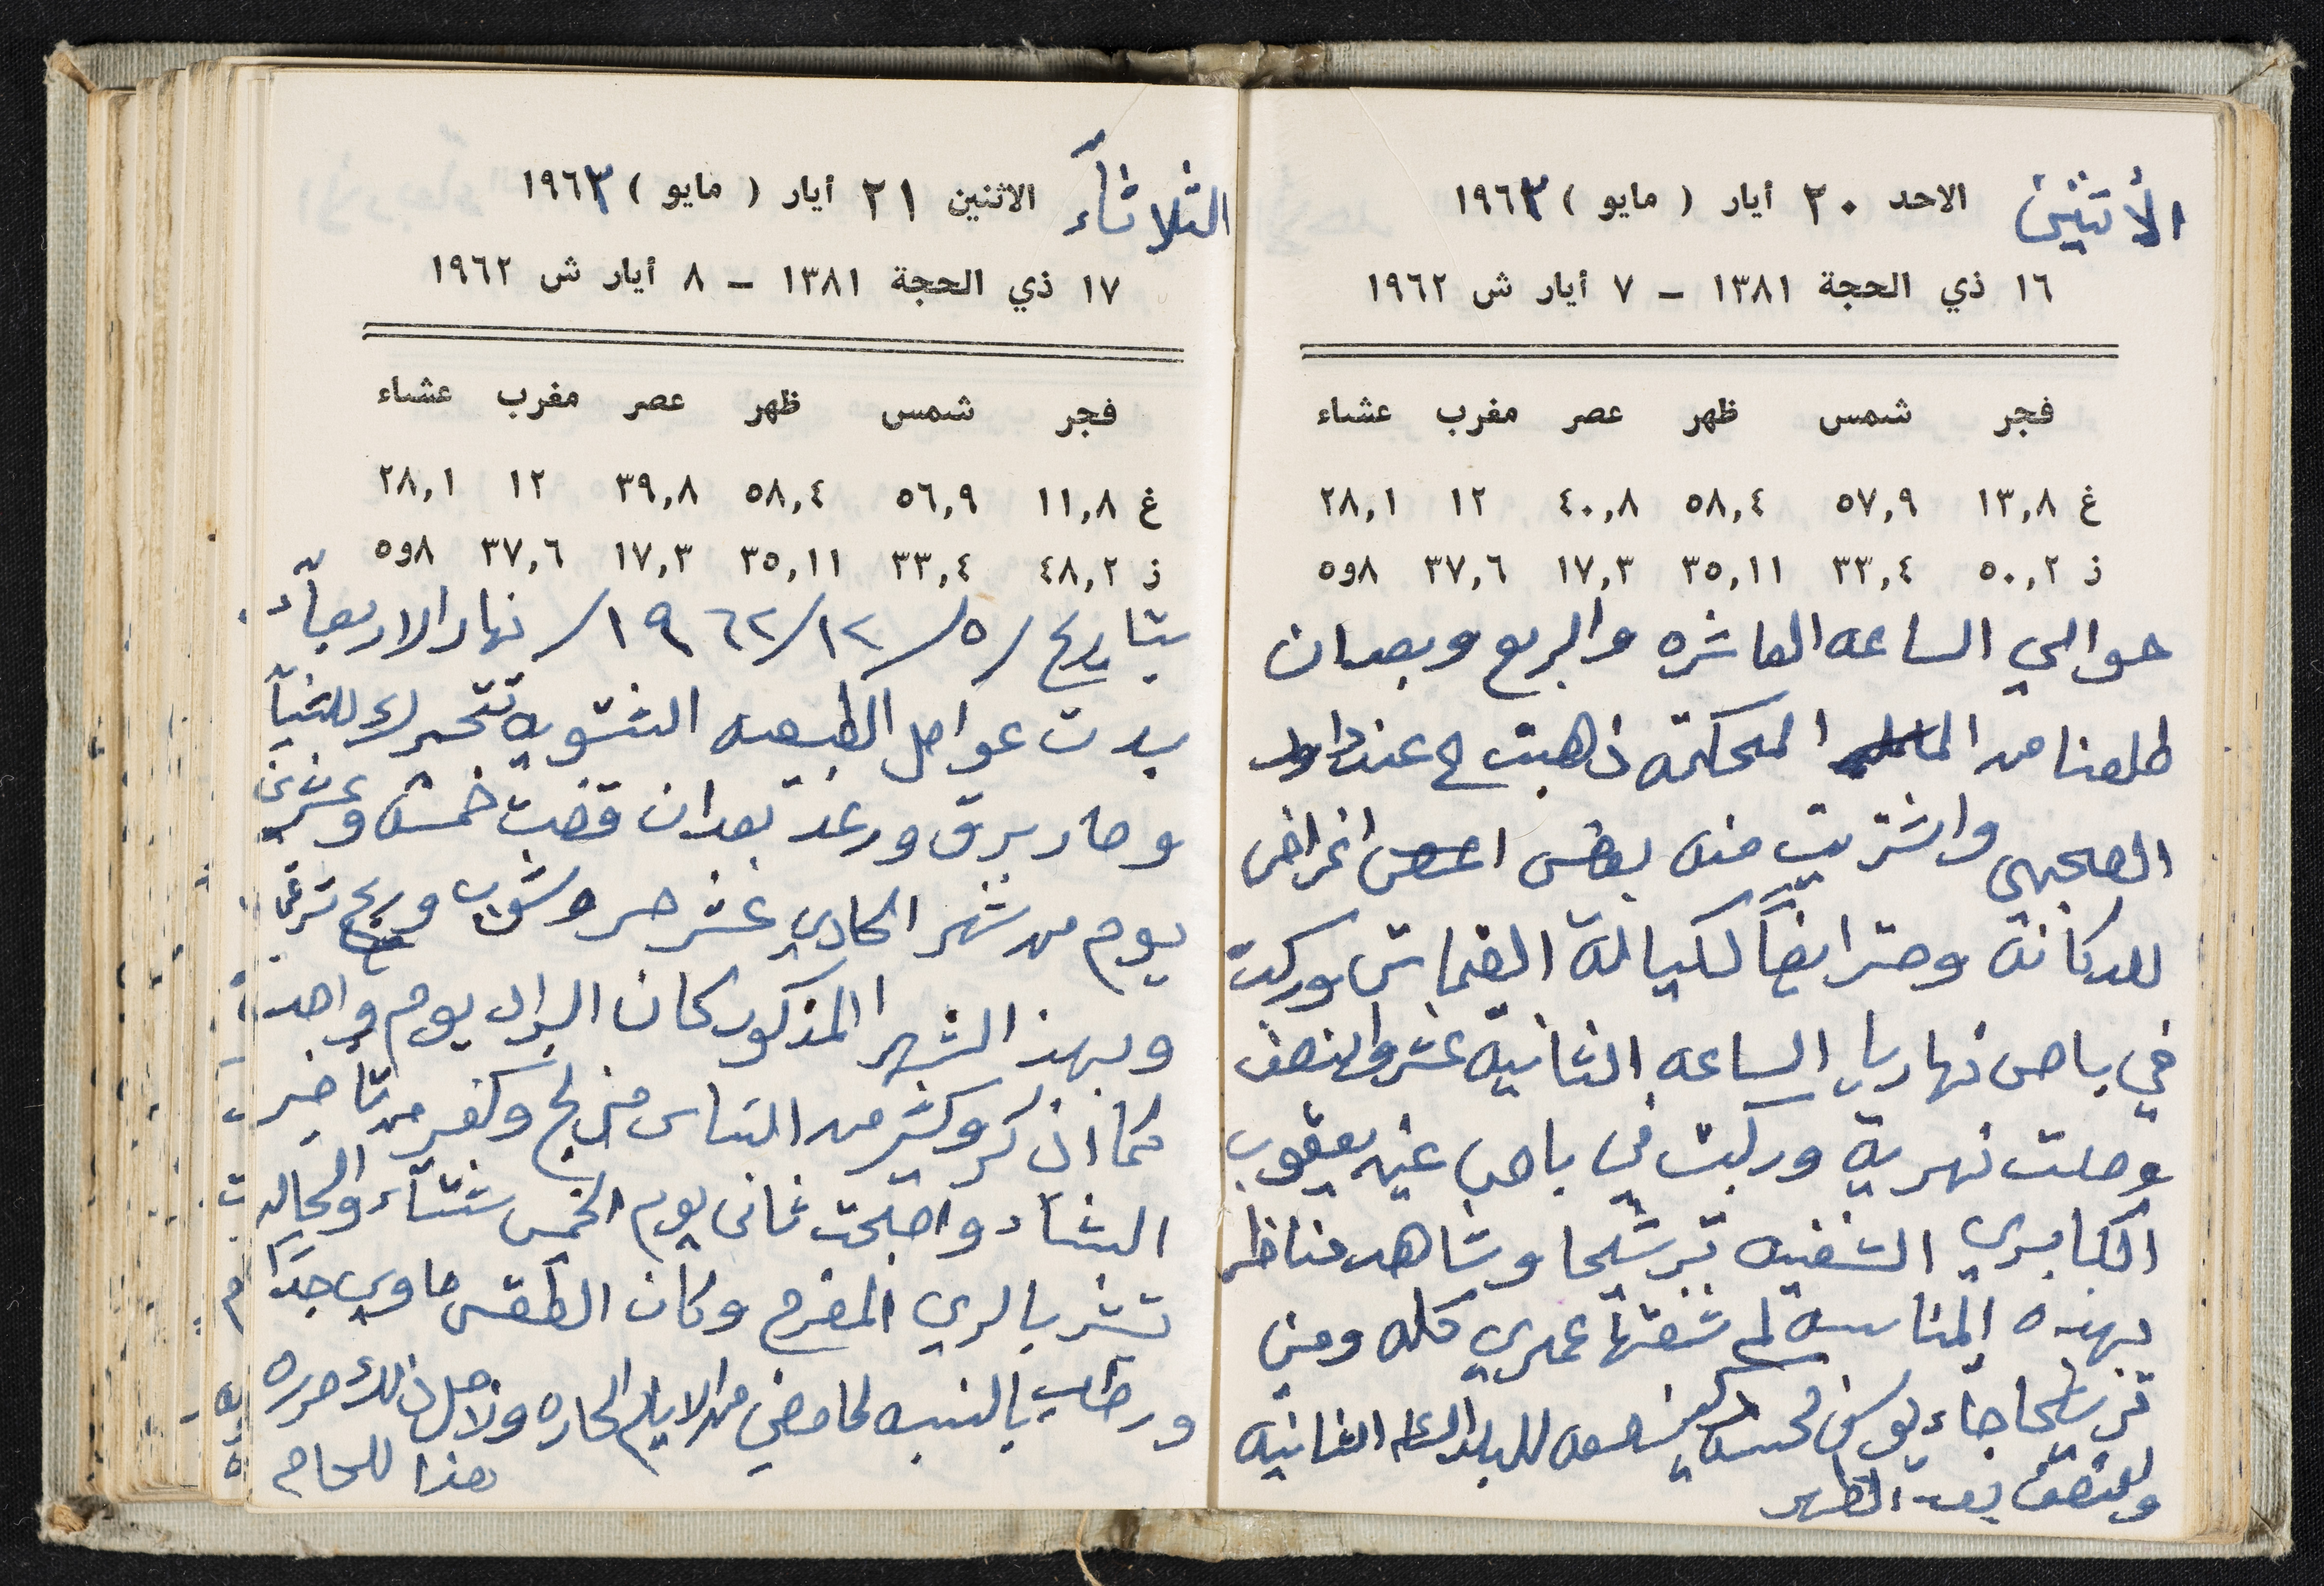 الأثنين الاحد ٢٠ أيار ( مايو ) ١٩٦٣
١٦ ذي الحجة ١٣٨١ – ٧ أيار ش ١٩٦٢
فجر شمس ظهر عصر مغرب عشاء
غ ١٣,٨ ٥٧,٩ ٥٨,٤ ٤٠,٨ ١٢ ٢٨,١
ز ٥٠,٢ ٣٣,٤ ٣٥,١١ ١٧,٣ ٣٧,٦ ٨و٥
حوالي الساعه العاشره والربع وبعدان
طلعنا من المحكمه ذهبت ح عند داود
واشتريت منه بعض اغراض
للدكانه وحترايضاً لكيالة القماش وركبت
في باص نهاريا الساعه الثانيه عشر والنصف
وصلت نهرية وركبت في باص عيد يعقوب
الكابري الشفيه ترشيحا وشاهد مناظر
بهذه المناسبه لم شفتها عمري كله ومن
ترشيحا جاء يوسف محمد للبلد الثانيه
والنصف بعد الظهر
الثلاثآء الاثنين ٢١ أيار ( مايو ) ١٩٦٣
١٧ ذي الحجة ١٣٨١ – ٨ أيار ش ١٩٦٢
فجر شمس ظهر عصر مغرب عشاء
غ ١١,٨ ٥٦,٩ ٥٨,٤ ٣٩,٨ ١٢ ٢٨,١
ز ٤٨,٢ ٣٣,٤ ٣٥,١١ ١٧,٣ ٣٧,٦ ٨و٥
بتاريخ /٥/١٢/١٩٦٢/ نهار الاربعآء
بدت عوامل الطبيعه الشتويه تتحرك للشتآ
وصار برق ورعد بعد ان قضت خمسه وعشرين
يوم من شهر الحادي عشر حر وشوب وريح شرقي
وبهذ الشهر المذكور كان البراد يوم واحد
كما اذكر وكثير من الناس من تأخير
الشتاء واصبحت ثاني يوم الخميس شتآء والحاله
تبشر بالري المفرح وكان الطقس جداً
ورطب بالنسبه لما مضي من الايام الحاره ولاجل ذلك حرره
هذا للعام